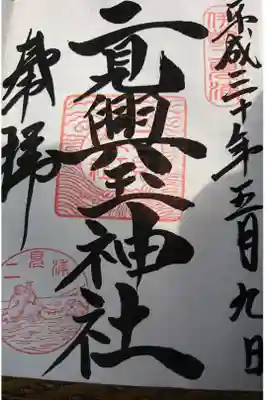 平成三十年五月九日
二見興玉神社
奉拝